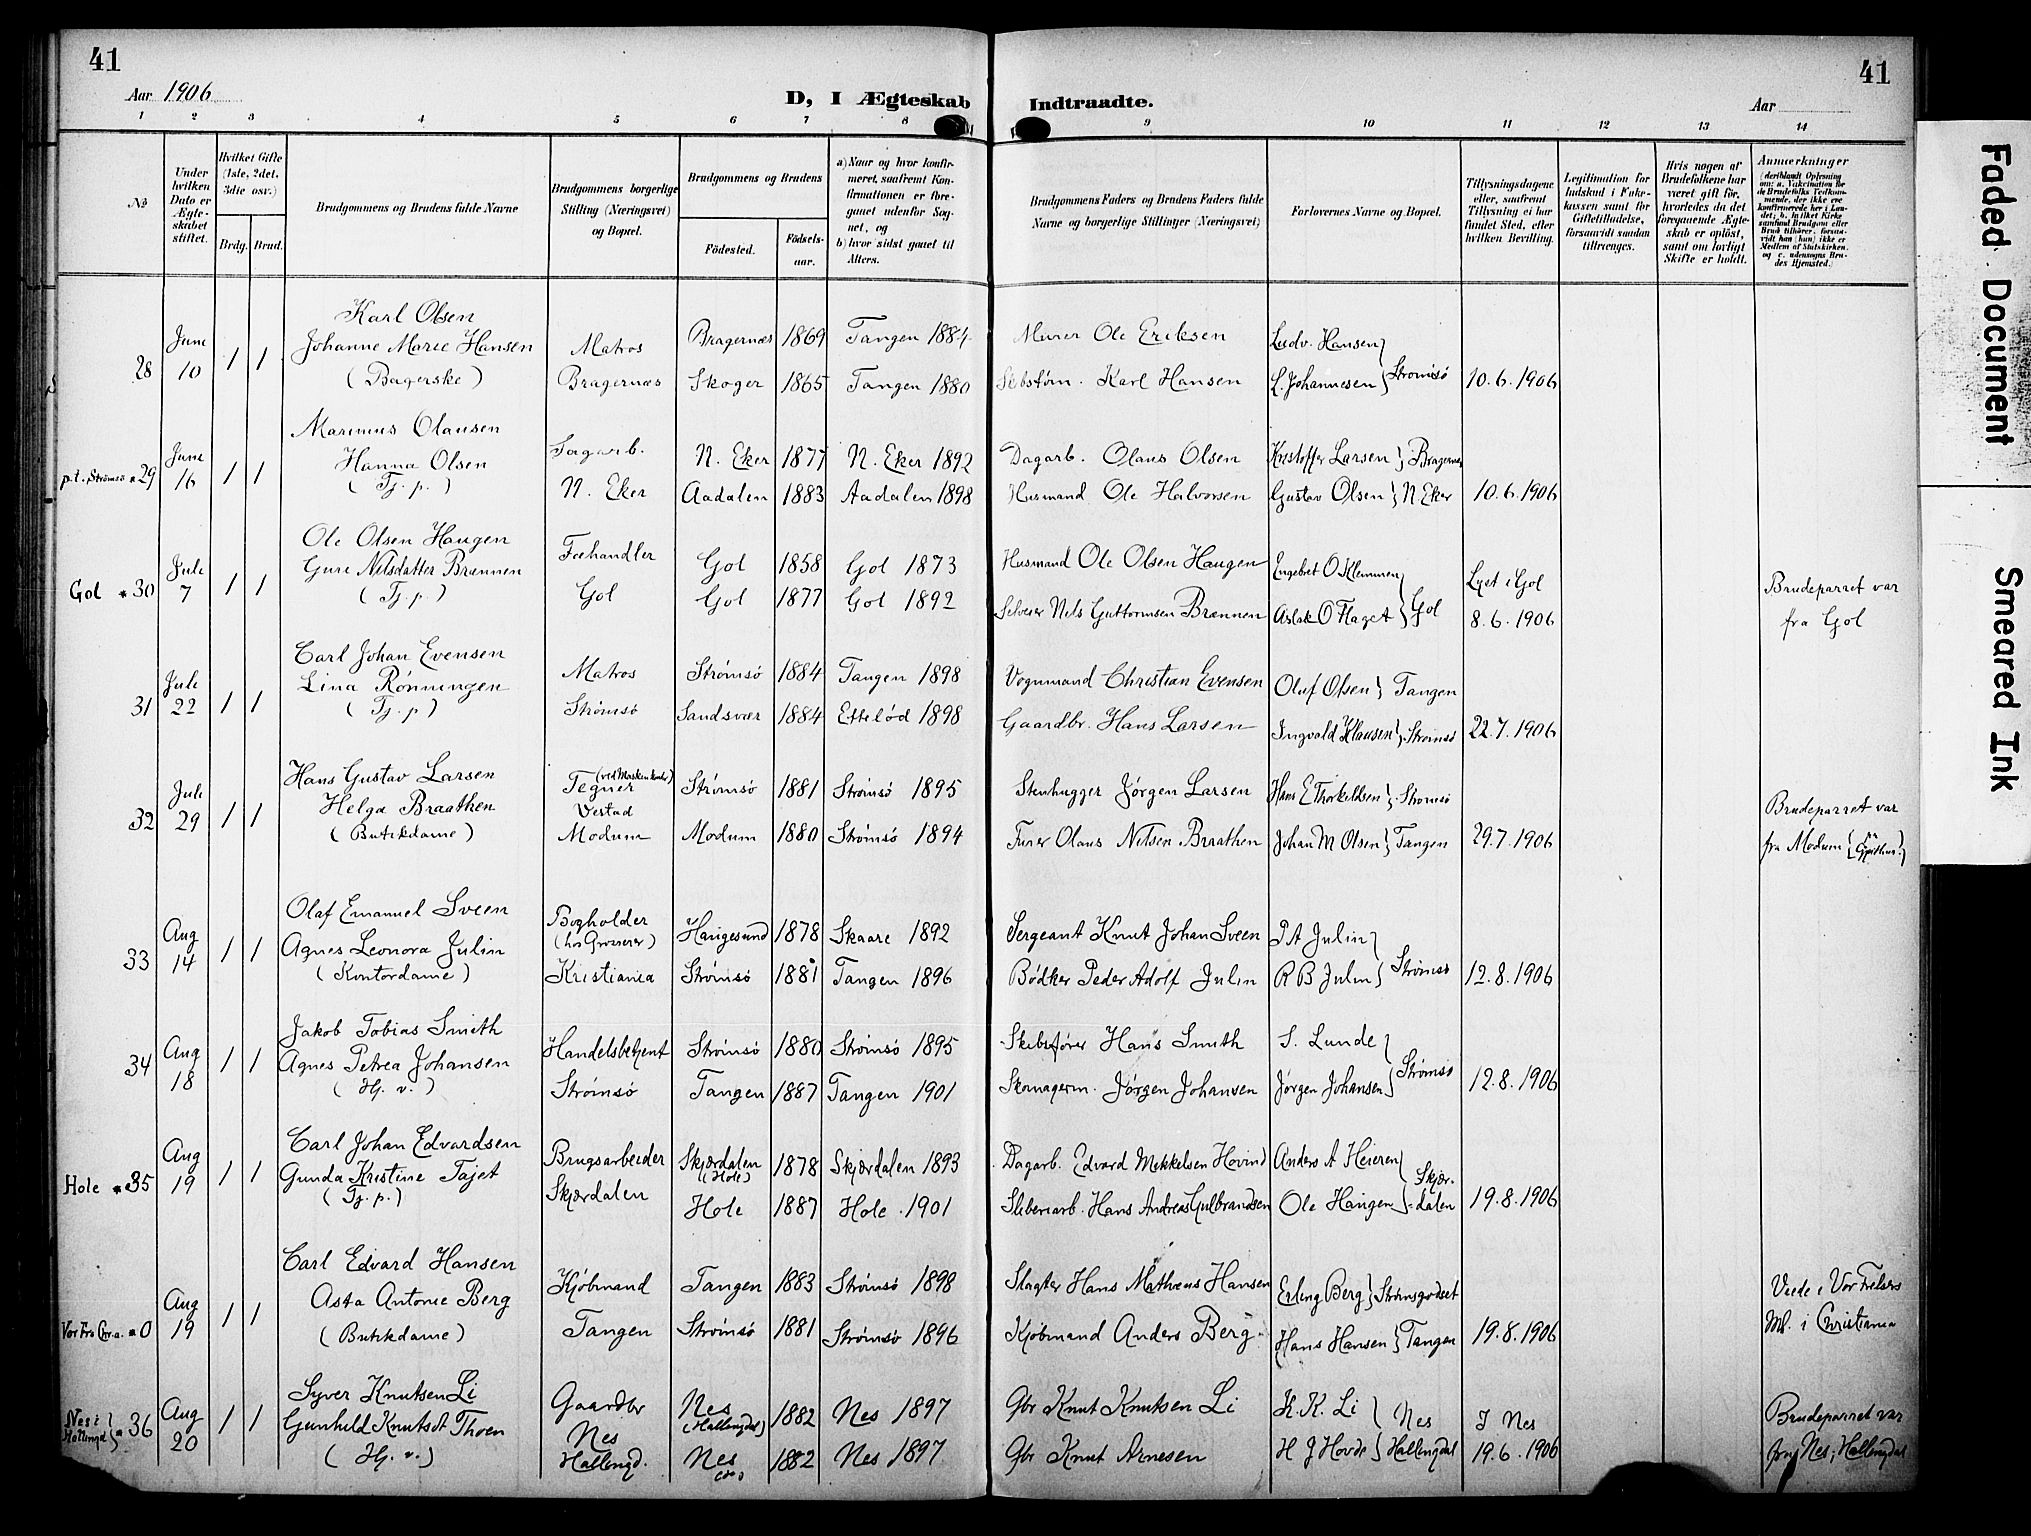 41
41
Aar 1906
D, I Ægteskab Indtraadte.
Aar
1 2 3 4 5 6 7 8 9 10 11 12 13 14
No
Under hvilken Dato er Ægteskabet stiftet.
Hvilket Gifte (1ste, 2det, 3die osv.)
Brdg. Brud.
Brudgommens og Brudens fulde Navne
Brudgommens borgerlige Stilling (Næringsvei) og Bopæl.
Brudgommens og Brudens
Födested. Födsels-aar.
a) Naar og hvor konfirmeret, saafremt Konfirmationen er foregaaet udenfor Sognet, og b) hvor sidst gaaet til Alters.
Brudgommens Faders og Brudens Faders fulde Navne og borgerlige Stillinger (Næringsvei)
Forlovernes Navne og Bopæl.
Tillysningsdagene eller, saafremt Tillysning ei har fundet Sted, efter hvilken Bevilling.
Legitimation for Indskud i Enkekassen samt for Giftetilladelse, forsaavidt saadan tiltrænges.
Hvis nogen af Brudefolkene har været gift för, hvorledes da det foregaaende Ægteskab er oplöst, samt om lovligt Skifte er holdt.
Anmærkninger
28 June 10 1 1
Karl Olsen
Johanne Marie Hansen
(Bagerske)
Matros
Bragernæs
Bragernæs 1869 Tangen 1884
Skoger 1865 Tangen 1880
Murer Ole Eriksen
Skbstøm. Karl Hansen
Ludv. Hansen
L. Johannesen } Strømsø
10.6.1906
p.t. Strømsø 29 June 16 1 1
Marinius Olausen
Hanna Olsen
(Tj. p.)
Sagarb.
N. Eker
N. Eker 1877 N. Eker 1892
Aadalen 1883 Aadalen 1898
Dagarb. Olaus Olsen
Husmand Ole Halvorsen
Kristoffer Larsen } Bragernæs
Gustav Olsen } N. Eker
10.6.1906
Gol 30 Juli 7 1 1
Ole Olsen Haugen
Guri Nilsdatter Brænnen
(Tj. p.)
Fæhandler
Gol
Gol 1858 Gol 1873
Gol 1877 Gol 1892
Husmand Ole Olsen Haugen
Selveier Nels Guttormsen Brænnen
Engebret O Klemmen
Aslak O Flaget } Gol
Lyst i Gol
8.6.1906
Brudeparret var
fra Gol
31 Juli 22 1 1
Carl Johan Evensen
Lina Rønningen
(Tj. p)
Matros
Strømsø
Strømsø 1884 Tangen 1898
Sandsvær 1884 Eftelød 1898
Vognmand Christian Evensen
Gaardbr. Hans Larsen
Oluf Olsen } Tangen
Ingvald Klausen } Strømsø
22.7.1906
32 Juli 29 1 1
Hans Gustav Larsen
Helga Braathen
(Butikdame)
Tegner
Vestad
Modum
Strømsø 1881 Strømsø 1895
Modum 1880 Strømsø 1894
Stenhugger Jørgen Larsen
Furer Olaus Nilsen Braathen
Hans E Thorkildsen } Strømsø
Johan M Olsen } Tangen
29.7.1906
Brudeparret var
fra Modum
33 Aug 14 1 1
Olaf Emanuel Sveen
Agnes Leonora Julin
(Kontordame)
Bogholder
(hos Grosserer)
Kristiania
Haugesund 1878 Skaare 1892
Strømsø 1881 Tangen 1896
Sergeant Knut Johan Sveen
Bødker Peder Adolf Julin
P A Julin
R B Julin } Strømsø
12.8.1906
34 Aug 18 1 1
Jakob Tobias Smith
Agnes Petrea Johansen
(Hj. v.)
Handelsbetjent
Strømsø
Strømsø 1880 Strømsø 1895
Tangen 1887 Tangen 1901
Skibsfører Hans Smith
Skomagerm. Jørgen Johansen
S. Lunde
Jørgen Johansen } Strømsø
12.8.1906
Hole 35 Aug 19 1 1
Carl Johan Edvardsen
Gunda Kristine Tajet
(Tj. p.)
Brugsarbeider
Skjærdalen
Skjærdalen (Hole) 1878 Skjærdalen 1893
Hole 1887 Hole 1901
Dagarb. Edvard Mikkelsen Hovind
Sliberiarb. Hans Andreas Gulbrandsen
Anders A Heieren
Ole Haugen } Skjær-dalen
19.8.1906
Vor Frs Chr.a. 0 Aug 19 1 1
Carl Edvard Hansen
Asta Antonie Berg
(Butikdame)
Kjøbmand
Tangen
Tangen 1883 Strømsø 1898
Strømsø 1881 Strømsø 1896
Slagter Hans Mathæus Hansen
Kjøbmand Anders Berg
Erling Berg } Strømsgodset
Hans Hansen } Tangen
19.8.1906
Viede i Vor Frelsers
i Christiania
Nes i Hallingd 36 Aug 20 1 1
Syver Knutsen Li
Gunhild Knutsdt Thoen
(Hj. v.)
Gaardbr
Nes
Hallingd.
Nes (Hallingdal) 1882 Nes 1897
Nes (do) 1882 Nes 1897
Gbr Knut Knutsen Li
Gbr Knut Arnesen
K. K. Li
H J Hovde } Nes Hallingdal
I Nes
19.6.1906
Brudeparret var
fra Nes, Hallingdal
Faded Document
Smeared Ink